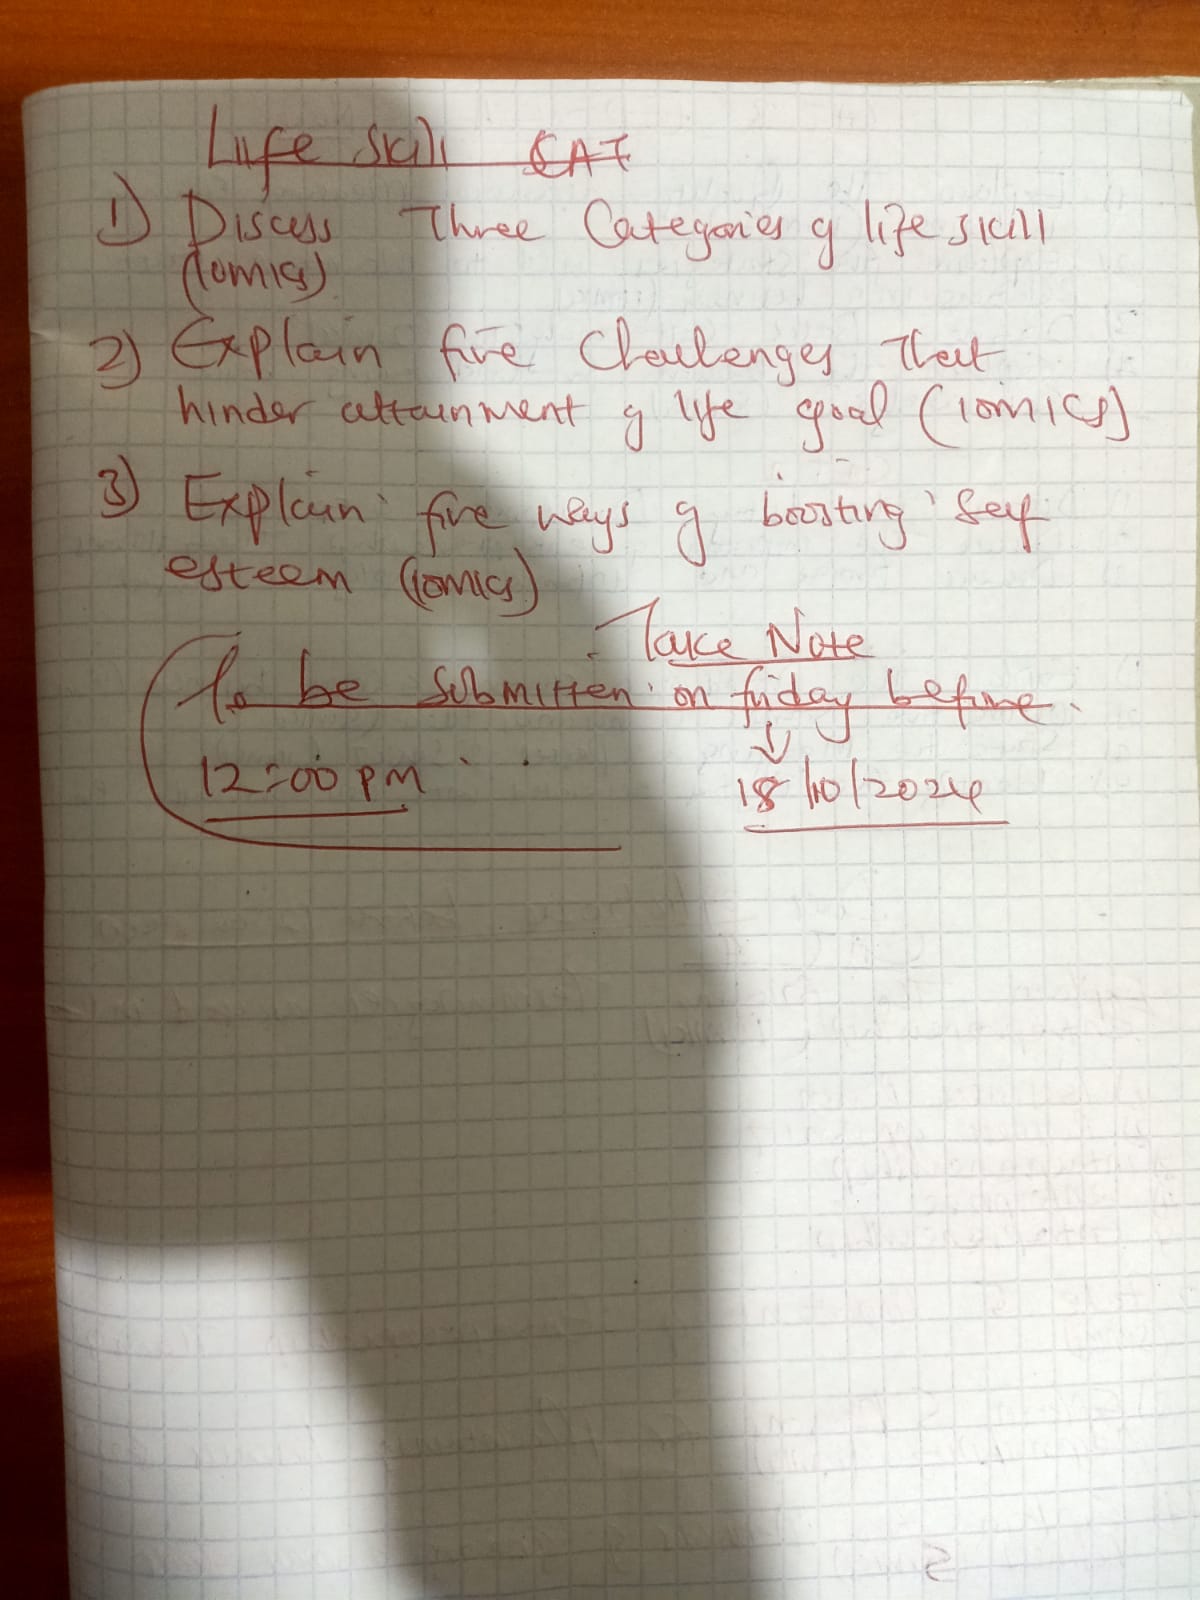 Life Skill CAT
1) Discuss Three Categories of life skill
(10mks)
2) Explain five Challenges That
hinder attainment of life goal (10mks)
3) Explain five ways of boosting self
esteem (10mks)
Take Note
To be submitten on friday before
12:00 pm 18/10/2024